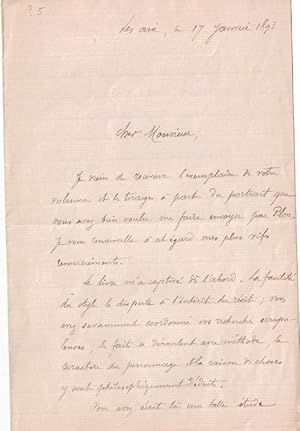 P 5
Les Aix, le 17 Janvier 1893
Cher Monsieur,
Je viens de recevoir l'exemplaire de votre
volume et les tirages à part du portrait que
vous avez bien voulu me faire envoyer par Plon.
Je vous renouvelle à cet égard mes plus vifs
remerciements.
Le livre m'a captivé dès l'abord. La facilité
du style le dispute à l'intérêt du récit ; vous
avez savamment coordonné vos recherches scrupu-
leuses, les faits se déroulent avec méthode, le
caractère du personnage et la raison des choses
y sont philosophiquement déduits.
Vous avez écrit là une belle étude